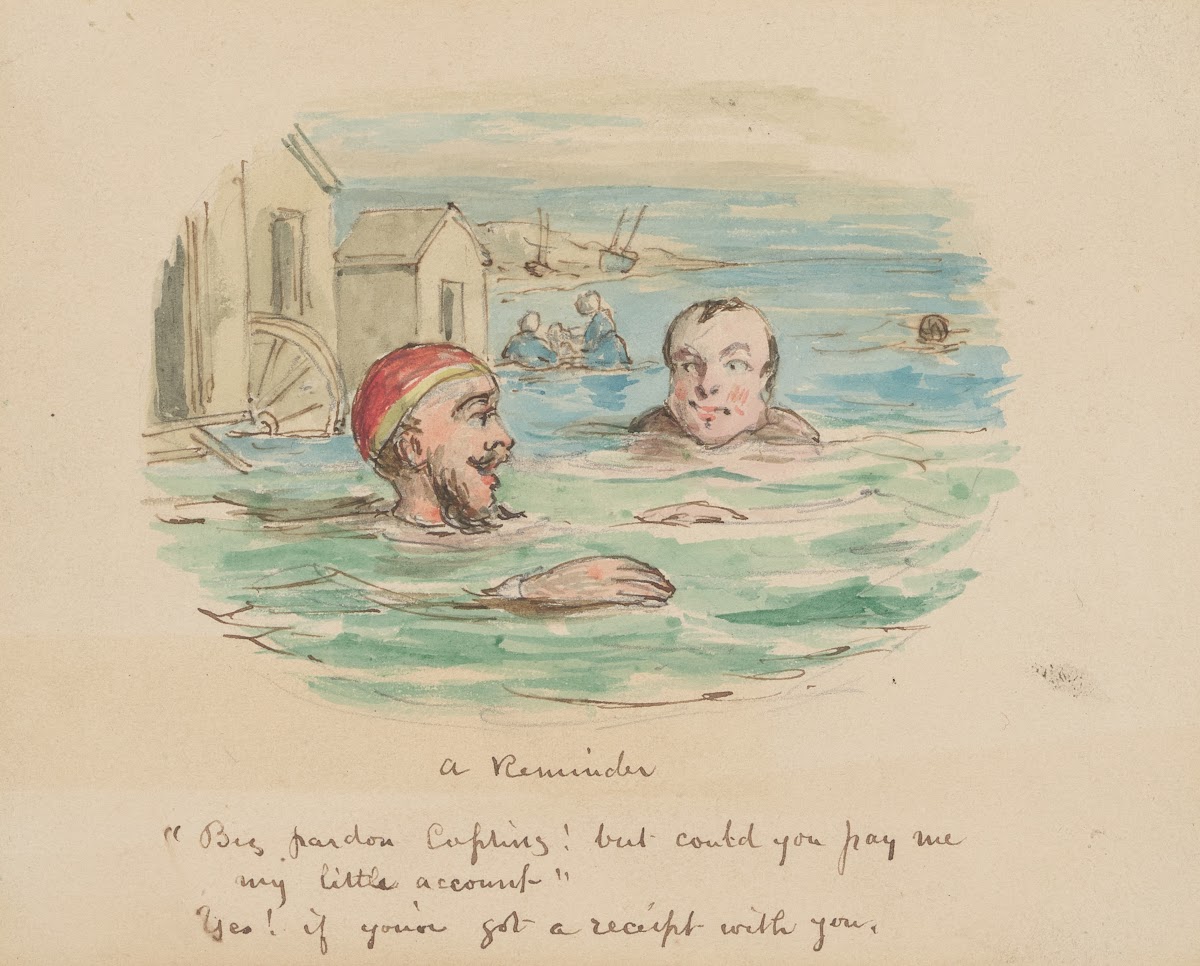 a Reminder
"Beg pardon Capting! but could you pay me
my little account"
Yes! if you've got a receipt with you.